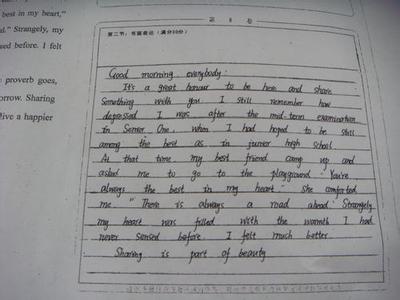 best in my heart,"
d." Strangely, my
sed before. I felt
proverb goes,
orrow. Sharing
live a happier
第二节：书面表达（满分30分）
Good morning, everybody:
It's a great honour to be here and share
something with you. I still remember how
depressed I was after the mid-term examination
in Senior One, when I had hoped to be still
among the best as in junior high school.
At that time my best friend came up and
asked me to go to the playground. "You're
always the best in my heart" she comforted
me. "There is always a road ahead." Strangely,
my heart was filled with the warmth I had
never sensed before. I felt much better.
Sharing is part of beauty